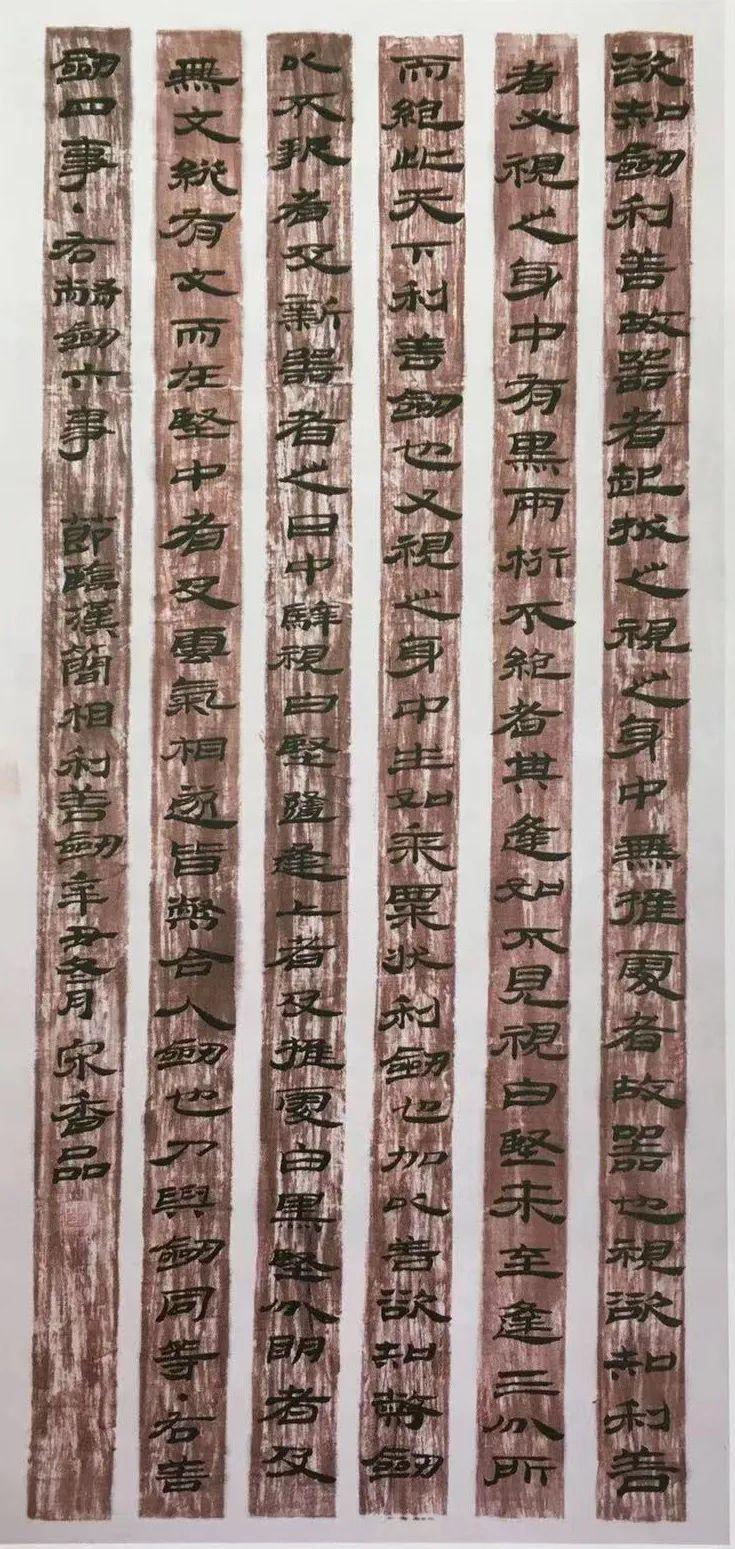 欲知劒利善故器者起拔之視之身中無推處者故器也視欲知利善
者必視之身中有黑兩桁不絶者其逢如不見視白堅未至逢三分所
而絶此天下利善劒也又視之身中生如黍粟狀利劒也加以善欲知幣劒
以不報者及新器者之日中騂視白堅隨逢上者及推處白黑堅分明者及
無文縱有文而在堅中者及雲氣相遂皆幣合人劒也刀與劒同等·右善
劒四事·右幣劒六事 節臨漢簡相利善劒辛丑冬月宋香品